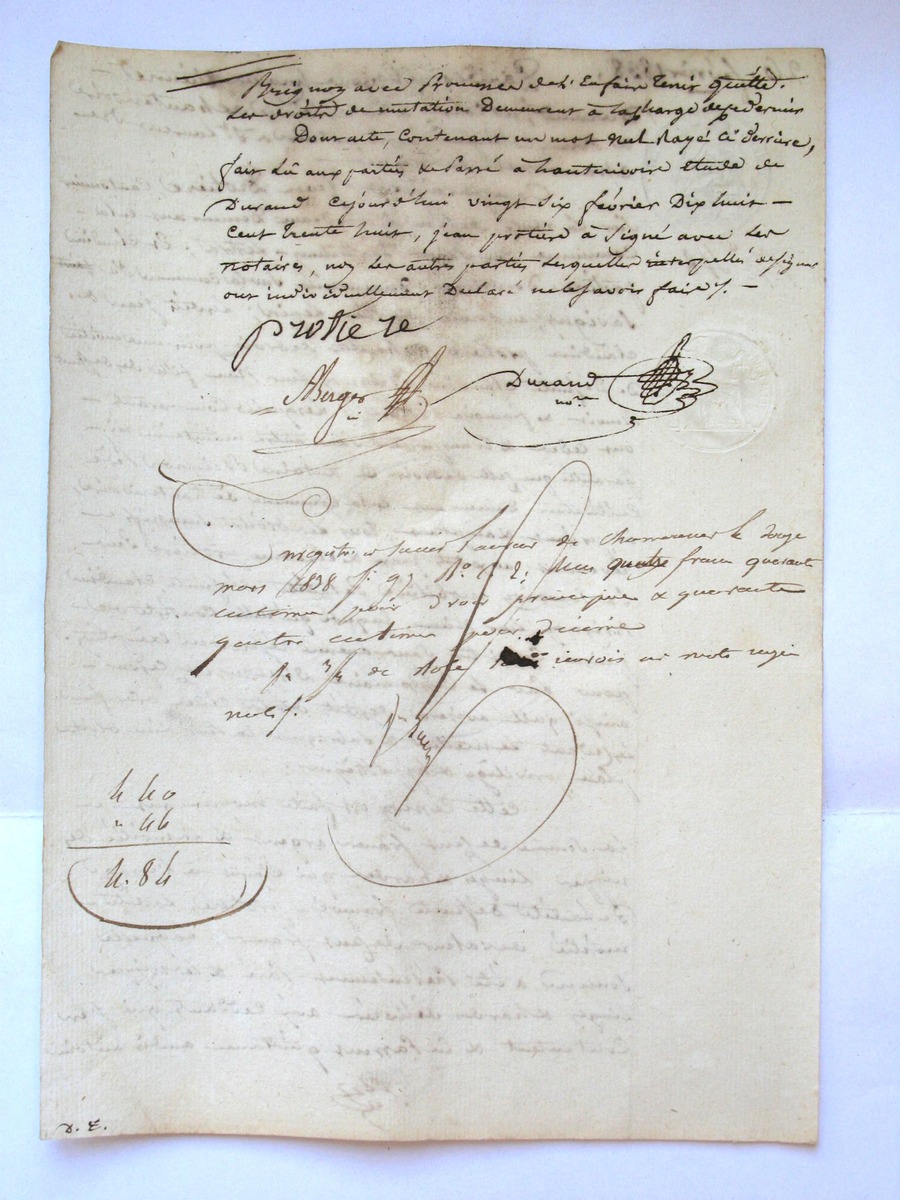 Brignoy avec Promesse de l'En faire tenir quitte.
Les droits de mutation Demeurent à la charge de ce dernier
Dont acte, Contenant un mot nul Rayé Ci derrière,
fait Lû aux parties & Passé à hauterivoire étude de
Durand Cejourd'hui vingt Six février Dix huit —
Cent Trente huit, jean protiere à Signé avec Les
notaires, non Les autres parties Lesquelles interpellés de signer
ont individuellement Declaré ne le Savoir faire /. —
protiere
ABerger
Durand
nore
Enregistré à
mars 1838 f° 97 N° quatre francs quarante
centimes pour droit principal & quarante
quatre centimes pour décime
de mots rayés
nuls /.
4 40
" 44
4. 84
D. E.